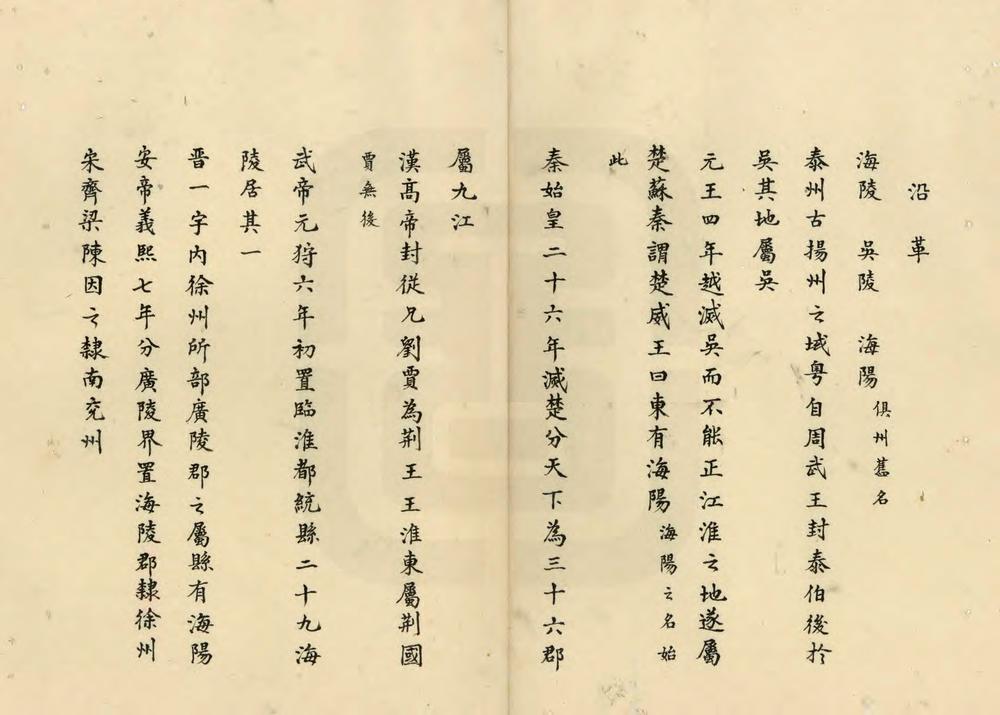 沿革
海陵 吳陵 海陽 俱州舊名
泰州古揚州之域粤自周武王封泰伯後於
吳其地屬吳
元王四年越滅吳而不能正江淮之地遂屬
楚蘇秦謂楚威王曰東有海陽 海陽之名始
此
秦始皇二十六年滅楚分天下為三十六郡
屬九江
漢髙帝封從兄劉賈為荆王王淮東屬荆國
賈無後
武帝元狩六年初置臨淮都統縣二十九海
陵居其一
晋一字内徐州所部廣陵郡之屬縣有海陽
安帝義熙七年分廣陵界置海陵郡隸徐州
宋齊梁陳因之隸南兖州